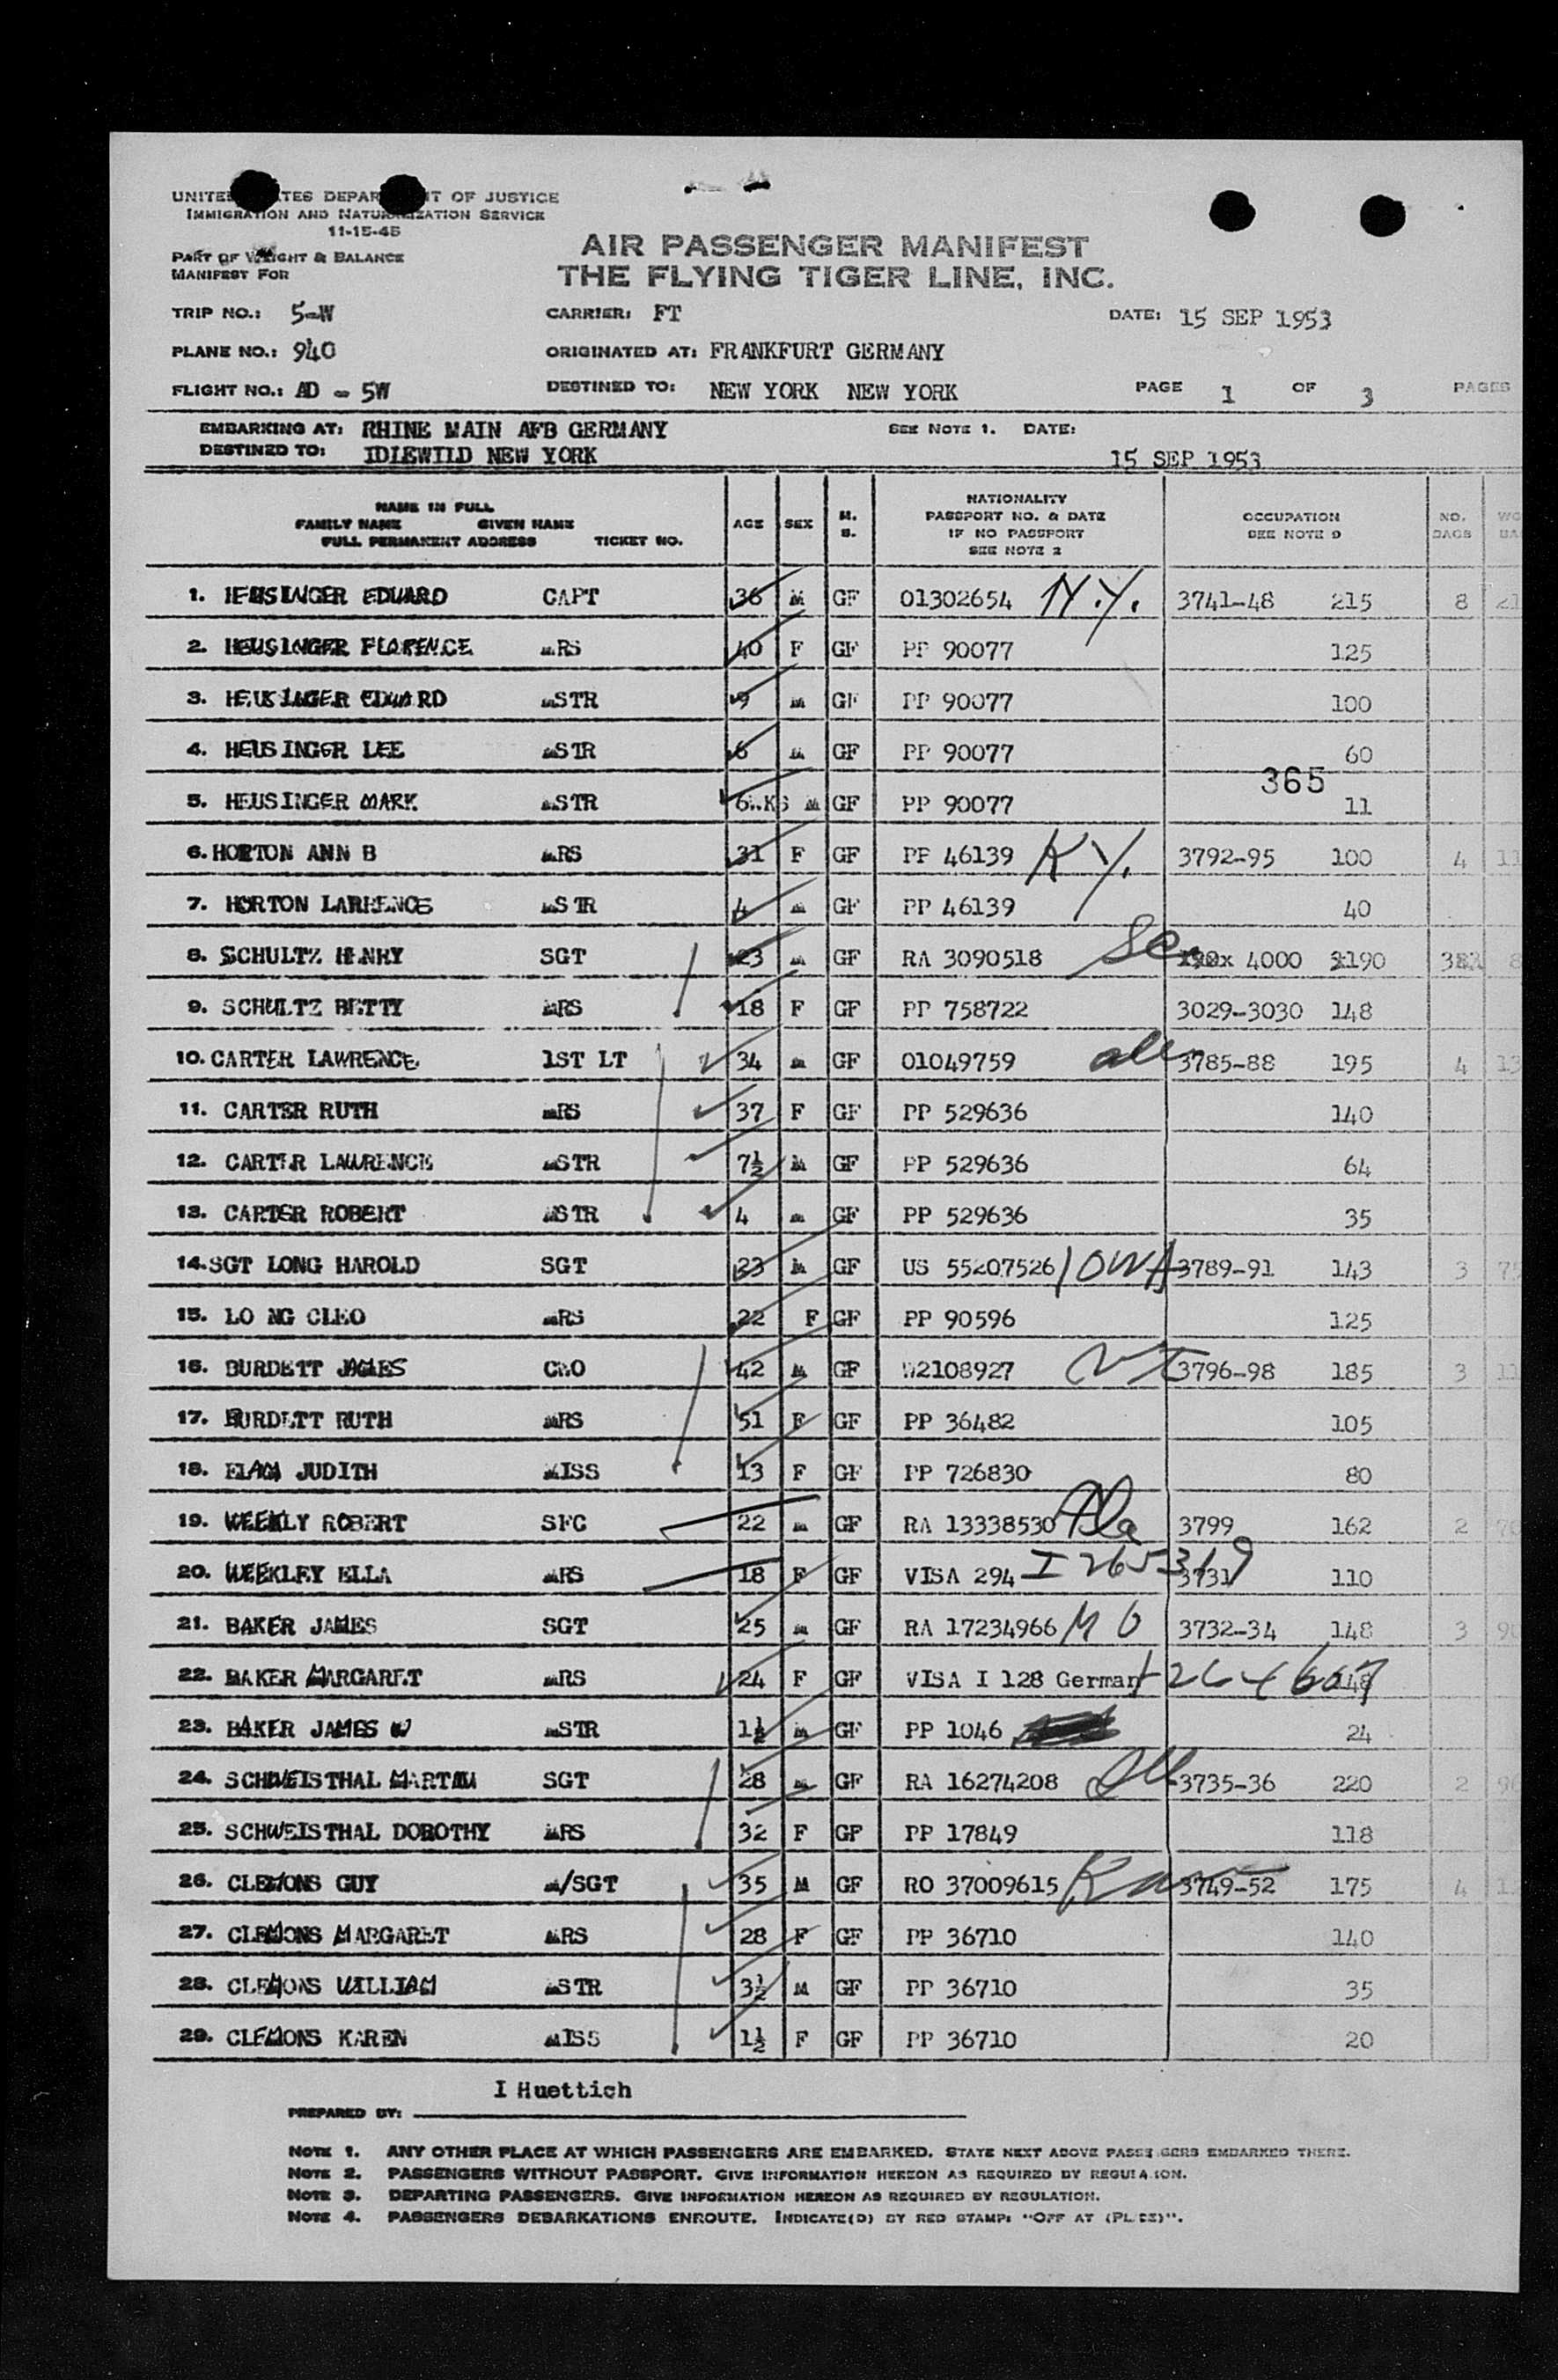 UNITED STATES DEPARTMENT OF JUSTICE
IMMIGRATION AND NATURALIZATION SERVICE
11-15-45
PART OF WEIGHT & BALANCE
MANIFEST FOR
AIR PASSENGER MANIFEST
THE FLYING TIGER LINE, INC.
TRIP NO.: 5-W CARRIER: FT DATE: 15 SEP 1953
PLANE NO.: 940 ORIGINATED AT: FRANKFURT GERMANY
FLIGHT NO.: AD - 5W DESTINED TO: NEW YORK NEW YORK PAGE 1 OF 3 PAGES
EMBARKING AT: RHINE MAIN AFB GERMANY SEE NOTE 1. DATE:
DESTINED TO: IDLEWILD NEW YORK 15 SEP 1953
NAME IN FULL
FAMILY NAME GIVEN NAME
FULL PERMANENT ADDRESS TICKET NO.
AGE SEX M. S.
NATIONALITY
PASSPORT NO. & DATE
IF NO PASSPORT
SEE NOTE 2
OCCUPATION
SEE NOTE 9
NO. BAGS
1. HEUSINGER EDUARD CAPT 36 M GF 01302654 N.Y. 3741-48 215 8
2. HEUSINGER FLORENCE MRS 40 F GF PP 90077 125
3. HEUSINGER EDUARD MSTR 9 M GF PP 90077 100
4. HEUSINGER LEE MSTR 6 M GF PP 90077 60
365
5. HEUSINGER MARK MSTR 6WKS M GF PP 90077 11
6. HORTON ANN B MRS 31 F GF PP 46139 KY. 3792-95 100 4
7. HORTON LARRENCE MSTR 4 M GF PP 46139 40
8. SCHULTZ HENRY SGT 23 M GF RA 3090518 4000 190
9. SCHULTZ BETTY MRS 18 F GF PP 758722 3029-3030 148
10. CARTER LAWRENCE 1ST LT 34 M GF 01049759 3785-88 195 4
11. CARTER RUTH MRS 37 F GF PP 529636 140
12. CARTER LAWRENCE MSTR 7½ M GF PP 529636 64
13. CARTER ROBERT MSTR 4 M GF PP 529636 35
14. SGT LONG HAROLD SGT 23 M GF US 55207526 IOWA 3789-91 143 3
15. LO NG CLEO MRS 22 F GF PP 90596 125
16. BURDETT JAMES CWO 42 M GF W2108927 3796-98 185 3
17. BURDETT RUTH MRS 51 F GF PP 36482 105
18. ELAM JUDITH MISS 13 F GF PP 726830 80
19. WEEKLY ROBERT SFC 22 M GF RA 13338530 Ala 3799 162 2
20. WEEKLEY ELLA MRS 18 F GF VISA 294 I 265319 3731 110
21. BAKER JAMES SGT 25 M GF RA 17234966 MO 3732-34 148 3
22. BAKER MARGARET MRS 24 F GF VISA I 128 German
23. BAKER JAMES W MSTR 1½ M GF PP 1046 24
24. SCHWEISTHAL MARTIN SGT 28 M GF RA 16274208 3735-36 220 2
25. SCHWEISTHAL DOROTHY MRS 32 F GF PP 17849 118
26. CLEMONS GUY M/SGT 35 M GF RO 37009615 3749-52 175 4
27. CLEMONS MARGARET MRS 28 F GF PP 36710 140
28. CLEMONS WILLIAM MSTR 3½ M GF PP 36710 35
29. CLEMONS KAREN MISS 1½ F GF PP 36710 20
I Huettich
PREPARED BY:
NOTE 1. ANY OTHER PLACE AT WHICH PASSENGERS ARE EMBARKED. STATE NEXT ABOVE PASSENGERS EMBARKED THERE.
NOTE 2. PASSENGERS WITHOUT PASSPORT. GIVE INFORMATION HEREON AS REQUIRED BY REGULATION.
NOTE 3. DEPARTING PASSENGERS. GIVE INFORMATION HEREON AS REQUIRED BY REGULATION.
NOTE 4. PASSENGERS DEBARKATIONS ENROUTE. INDICATE(D) BY RED STAMP: "OFF AT (PLACE)".